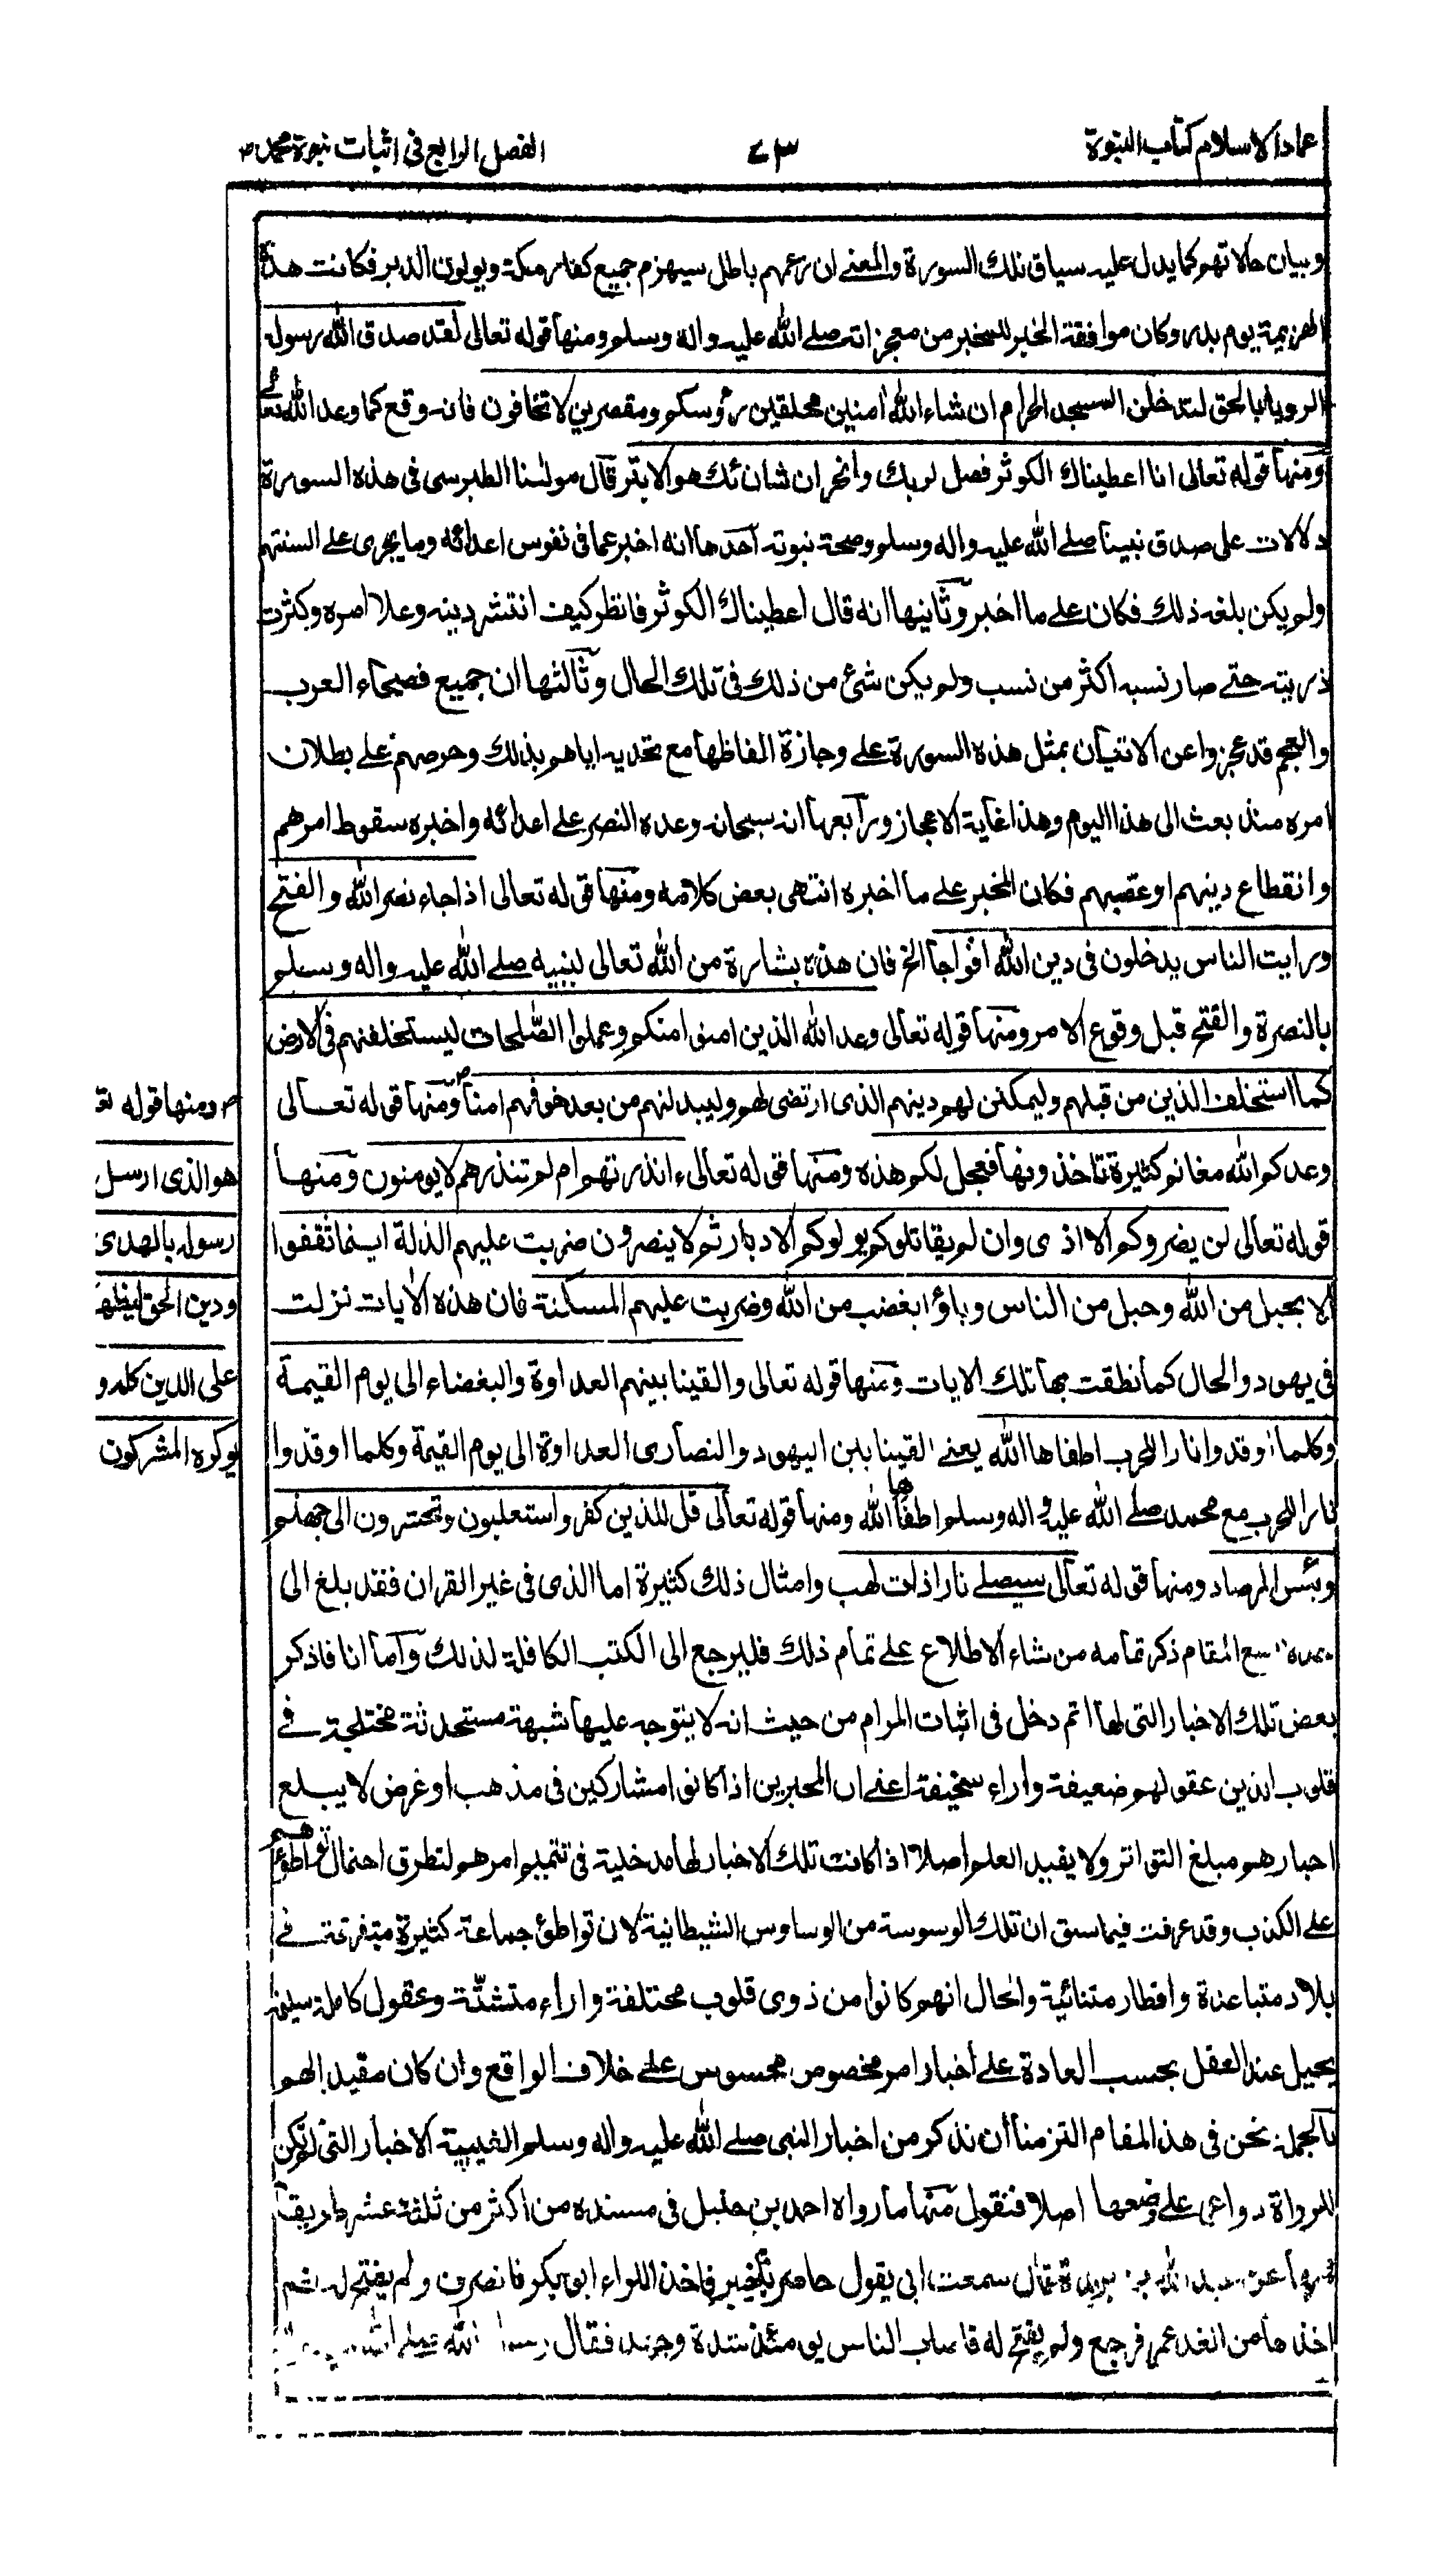 عماد الاسلام كتاب النبوة
٧٣
الفصل الرابع فی اثبات نبوة محمد ص
و بيان حالاتهم كما يدل عليه سياق تلك السورة والمعنے ان زعمهم باطل سيهزم جميع كفار مكة ويولون الدبر فكانت هذه
الهزيمة يوم بدر وكان موافقة الخبر للمخبر من معجزاته صلے الله عليه واله وسلم ومنها قوله تعالى لقد صدق الله رسوله
الرويا بالحق لتدخلن المسجد الحرام ان شاء الله امنين محلقين رؤسكم ومقصرين لا تخافون فانه وقع كما وعد الله تعالے
ومنها قوله تعالى انا اعطيناك الكوثر فصل لربك وانحر ان شانئك هو الابتر قال مولٰنا الطبرسی فی هذه السورة
دلالات على صدق نبينا صلے الله عليه واله وسلم وصحة نبوته احدها انه اخبر عما فی نفوس اعدائه وما يجری علے السنتهم
ولم يكن بلغه ذلك فكان علے ما اخبر وثانيها انه قال اعطيناك الكوثر فانظر كيف انتشر دينه وعلا امره وكثرت
ذريته حتے صار نسبه اكثر من نسب ولم يكن شئ من ذلك فی تلك الحال وثالثها ان جميع فصحاء العرب
والعجم قد عجزوا عن الاتيان بمثل هذه السورة علے وجازة الفاظها مع تحديه اياهم بذلك وحرصهم علے بطلان
امره منذ بعث الى هذا اليوم وهذا غاية الاعجاز ورابعها انه سبحانه وعده النصر علے اعدائه واخبره سقوط امرهم
وانقطاع دينهم او عقبهم فكان المخبر علے ما اخبره انتهى بعض كلامه ومنها قوله تعالى اذا جاء نصر الله والفتح
ورايت الناس يدخلون فی دين الله افواجا الخ فان هذه بشارة من الله تعالى لنبيه صلے الله عليه واله وسلم
بالنصرة والفتح قبل وقوع الامر ومنها قوله تعالى وعد الله الذين امنوا منكم وعملوا الصّٰلحات ليستخلفنهم فی الارض
كما استخلف الذين من قبلهم وليمكنن لهم دينهم الذی ارتضى لهم وليبدلنهم من بعد خوفهم امنا ص ومنها قوله تعالى
وعدكم الله مغانم كثيرة تاخذونها فعجل لكم هذه ومنها قوله تعالى ءانذرتهم ام لم تنذرهم لا يومنون ومنها
قوله تعالى لن يضروكم الا اذى وان لم يقاتلوكم يولوكم الادبار ثم لا ينصرون ضربت عليهم الذلة اينما ثقفوا
الا بحبل من الله وحبل من الناس وباؤا بغضب من الله وضربت عليهم المسكنة فان هذه الاٰيات نزلت
فی يهود والحال كما نطقت بها تلك الايات ومنها قوله تعالى والقينا بينهم العداوة والبغضاء الى يوم القيمة
وكلما اوقدوا نارا للحرب اطفاها الله يعنے القينا بين اليهود والنصارى العداوة الى يوم القيمة وكلما اوقدوا
نار الحرب مع محمد صلے الله عليه واله وسلم اطفاها الله ومنها قوله تعالى قل للذين كفروا ستغلبون وتحشرون الى جهنم
وبئس المرصاد ومنها قوله تعالى سيصلے نارا ذات لهب وامثال ذلك كثيرة اما الذی فی غير القران فقد بلغ الى
المقام ذكر تمامه من شاء الاطلاع علے تمام ذلك فليرجع الى الكتب الكافلة لذلك واما انا فاذكر
بعض تلك الاخبار التی لها اتم دخل فی اثبات المرام من حيث انه لا يتوجه عليها شبهة مستحدثة مختلجة فے
قلوب الذين عقولهم ضعيفة واراء سخيفة اعنے ان المخبرين اذا كانوا مشاركين فی مذهب او غرض لا يبلغ
اخبارهم مبلغ التواتر ولا يفيد العلم اصلا اذا كانت تلك الاخبار لها مدخلية فی تتميم امرهم لتطرق احتمال تواطؤهم
علے الكذب وقد عرفت فيما سبق ان تلك الوسوسة من الوساوس الشيطانية لان تواطؤ جماعة كثيرة متفرقة فے
بلاد متباعدة واقطار متنائية والحال انهم كانوا من ذوی قلوب مختلفة واراء متشتّتة وعقول كاملة
يحيل عند العقل بحسب العادة علے اخبار امر مخصوص محسوس علے خلاف الواقع وان كان مفيدا لهم
بالجملة نحن فی هذا المقام التزمنا ان نذكر من اخبار النبی صلے الله عليه واله وسلم الغيبية الاخبار التی لم تكن
للرواة دواعی علے وضعها اصلا فنقول منها ما رواه احمد بن حنبل فی مسنده من اكثر من ثلثة عشر طريقا
منها عن عبد الله بن بريدة قال سمعت ابی يقول حاصرنا خيبر فاخذ اللواء ابو بكر فانصرف ولم يفتح له ثم
اخذها من الغد عمر فرجع ولم يفتح له فاصاب الناس يومئذ شدة وجهد فقال رسول الله صلے الله
ص ومنها قوله تعـ
هو الذی ارسل
رسوله بالهدى
ودين الحق ليظهره
على الدين كله و
لو كره المشركون